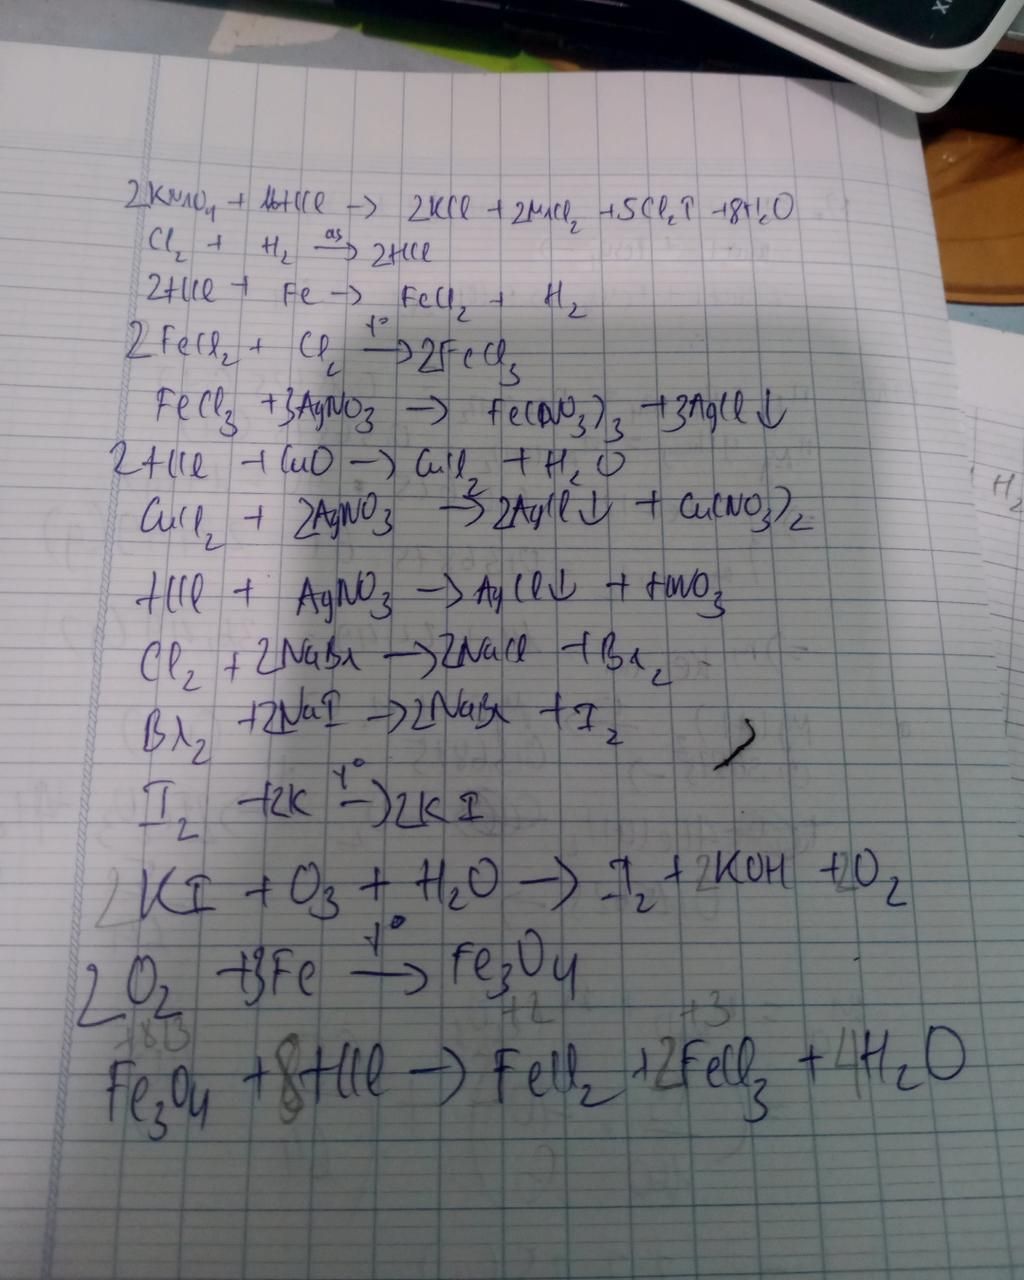 2KMnO₄ + 16HCl → 2KCl + 2MnCl₂ + 5Cl₂↑ + 8H₂O
Cl₂ + H₂ as→ 2HCl
2HCl + Fe → FeCl₂ + H₂
2FeCl₂ + Cl₂ t°→ 2FeCl₃
FeCl₃ + 3AgNO₃ → Fe(NO₃)₃ + 3AgCl↓
2HCl + CuO → CuCl₂ + H₂O
CuCl₂ + 2AgNO₃ → 2AgCl↓ + Cu(NO₃)₂
HCl + AgNO₃ → AgCl↓ + HNO₃
Cl₂ + 2NaBr → 2NaCl + Br₂
Br₂ + 2NaI → 2NaBr + I₂
I₂ + 2K t°→ 2KI
2KI + O₃ + H₂O → I₂ + 2KOH + 2O₂
2O₂ + 3Fe t°→ Fe₃O₄
+8/3 +2 +3
Fe₃O₄ + 8HCl → FeCl₂ + 2FeCl₃ + 4H₂O
H₂